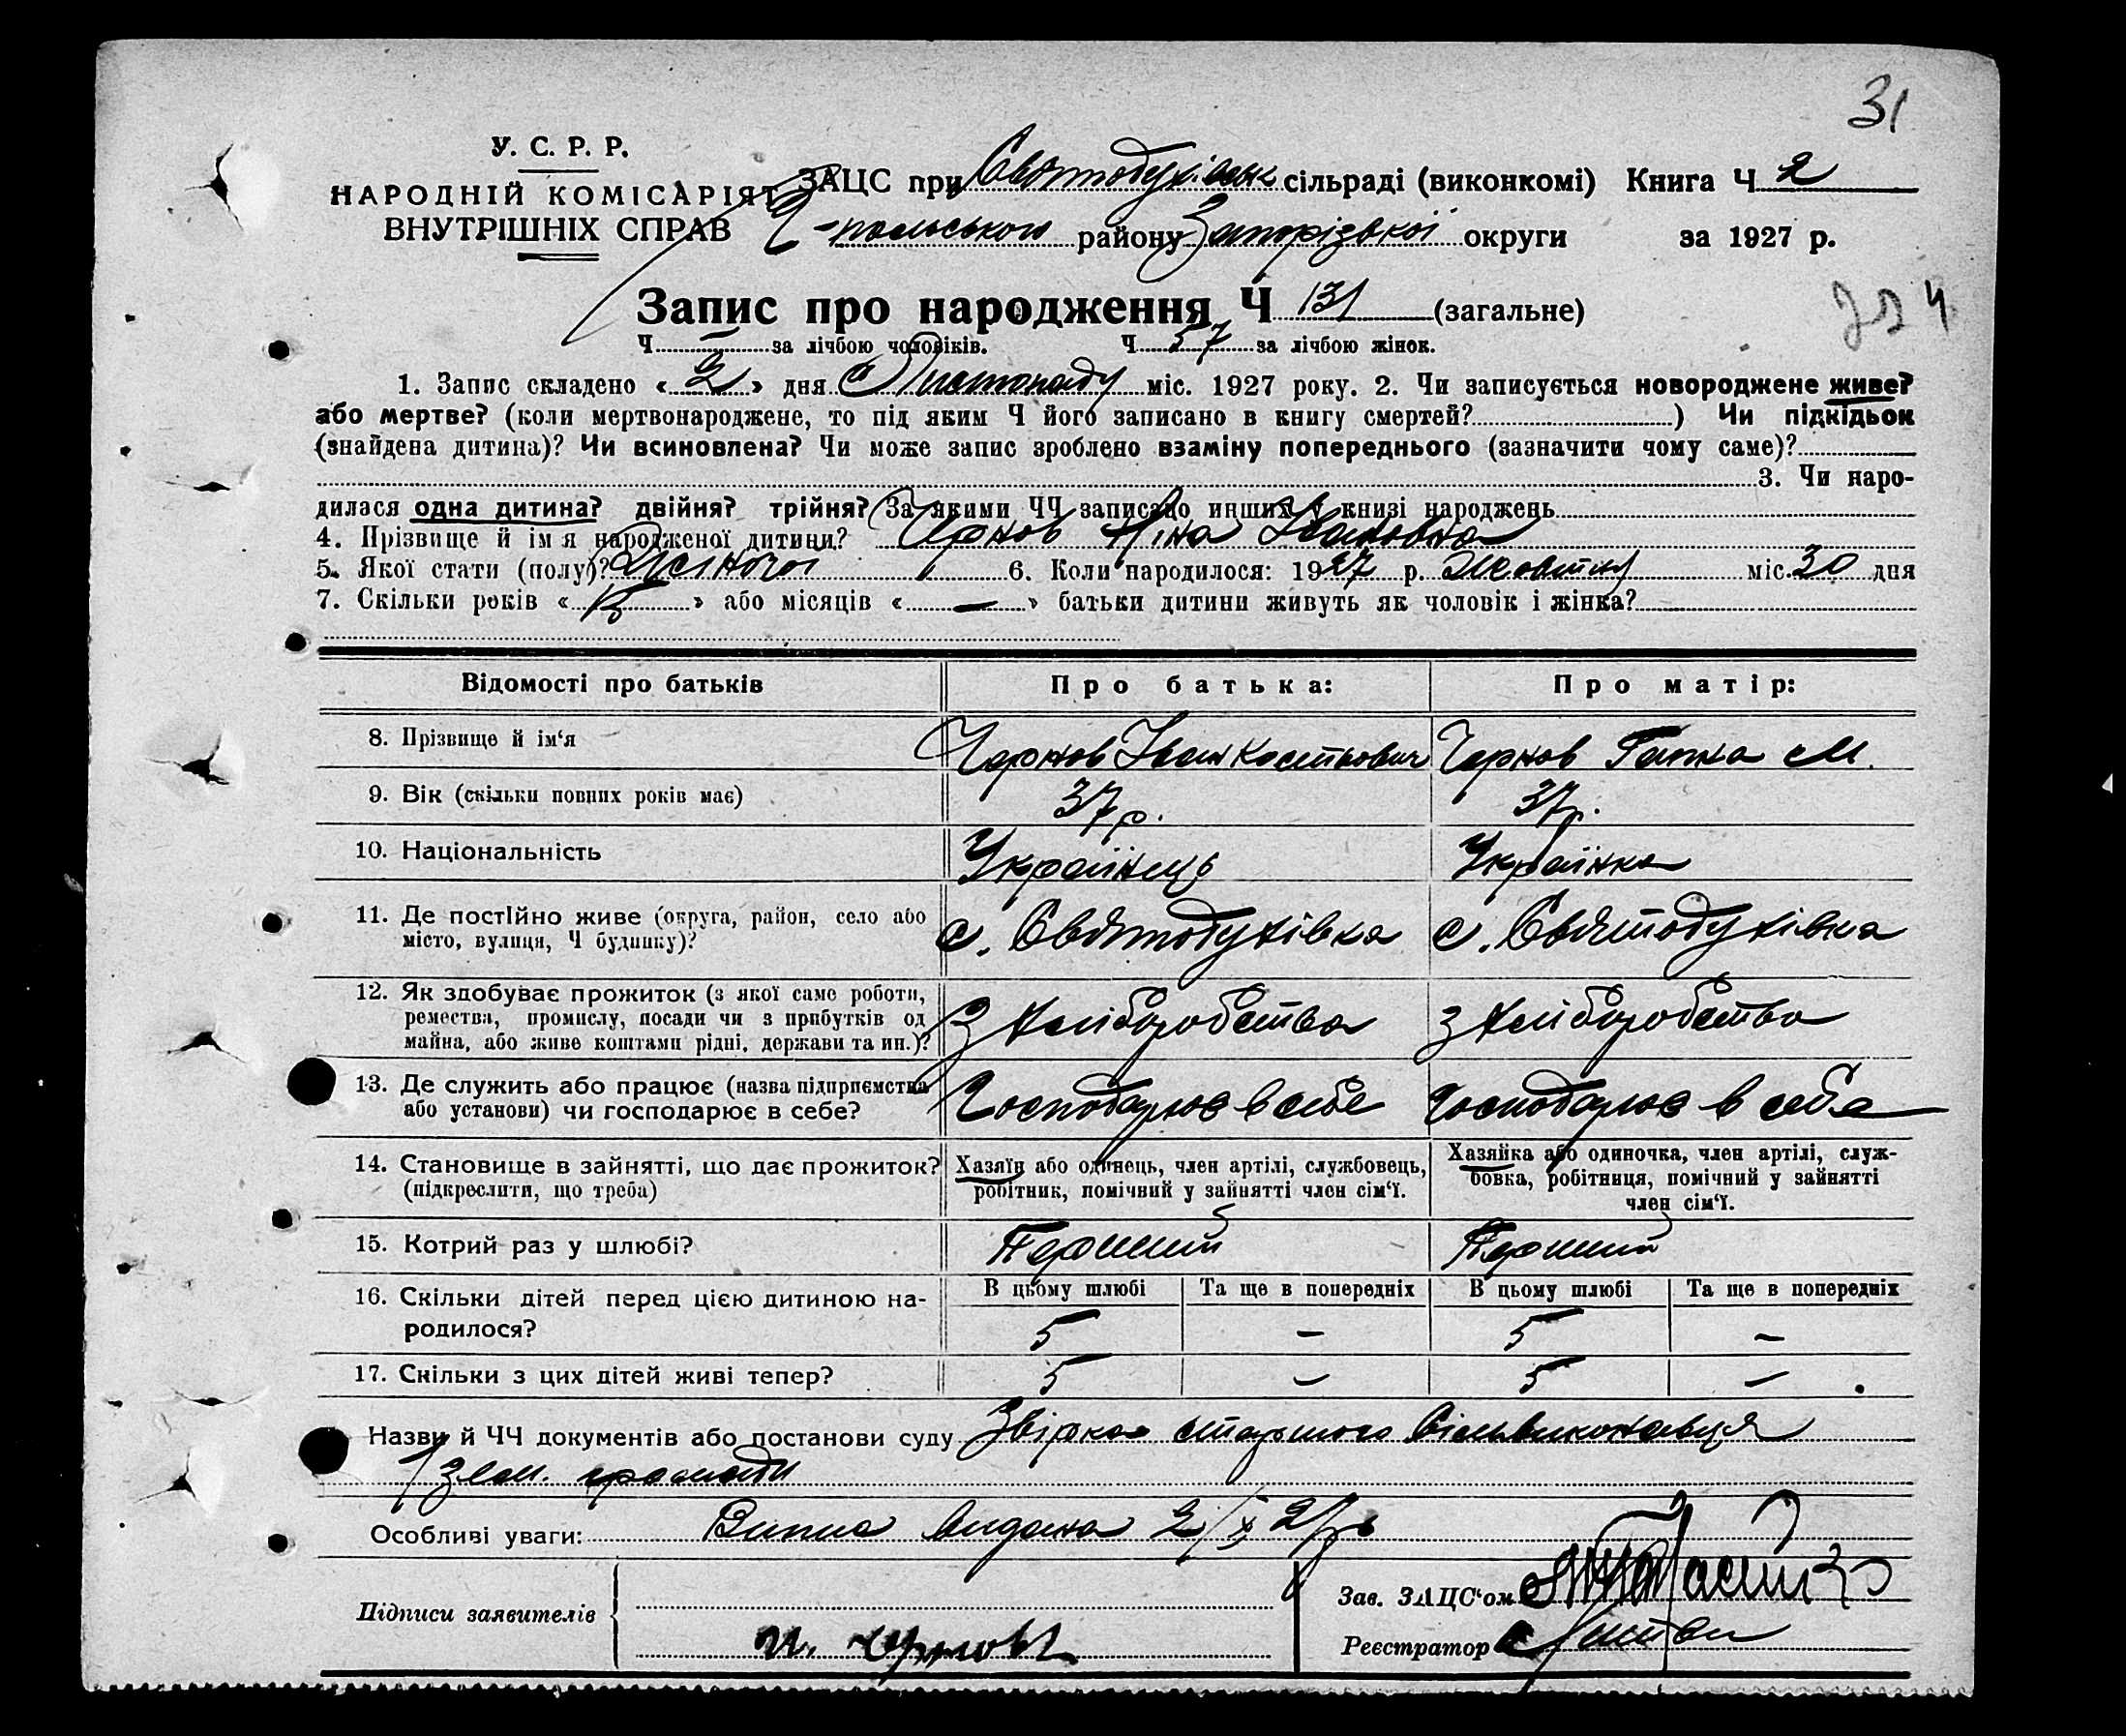 31
У. С. Р. Р.
НАРОДНІЙ КОМІСАРІЯТ
ВНУТРІШНІХ СПРАВ
ЗАЦС при Святодухівськ сільраді (виконкомі) Книга Ч 2
-польського району Запорізької округи за 1927 р.
Запис про народження Ч 131 (загальне)
Ч — за лічбою чоловіків. Ч 57 за лічбою жінок.
1. Запис складено « 2 » дня Листопаду міс. 1927 року. 2. Чи записується новороджене живе?
або мертве? (коли мертвонароджене, то під яким Ч його записано в книгу смертей? ) Чи підкідьок
(знайдена дитина)? Чи всиновлена? Чи може запис зроблено взаміну попереднього (зазначити чому саме)?
3. Чи наро-
дилася одна дитина? двійня? трійня? (За якими ЧЧ записано инших у книзі народжень
4. Прізвище й ім'я народженої дитини? Чернов Ніна Івановна
5. Якої статі (полу)? Жіночої 6. Коли народилося: 1927 р. Жовтня міс. 30 дня
7. Скільки років « » або місяців « — » батьки дитини живуть як чоловік і жінка?
Відомості про батьків Про батька: Про матір:
8. Прізвище й ім'я Чернов Іван Костьович Чернов Ганна М.
9. Вік (скільки повних років має) 37 р. 37 р.
10. Національність Українець Українка
11. Де постійно живе (округа, район, село або
місто, вулиця, Ч будинку)? с. Святодухівка с. Святодухівка
12. Як здобуває прожиток (з якої саме роботи,
ремества, промислу, посади чи з прибутків од
майна, або живе коштами рідні, держави та ин.)? З хліборобства З хліборобства
13. Де служить або працює (назва підприємства
або установи) чи господарює в себе? Господарює в себе Господарює в себе
14. Становище в зайнятті, що дає прожиток?
(підкреслити, що треба)
Хазяїн або одинець, член артілі, службовець,
робітник, помічний у зайнятті член сім'ї.
Хазяйка або одиночка, член артілі, служ-
бовка, робітниця, помічний у зайнятті
член сім'ї.
15. Котрий раз у шлюбі? Перший Перший
16. Скільки дітей перед цією дитиною на-
родилося?
В цьому шлюбі Та ще в попередніх В цьому шлюбі Та ще в попередніх
5 — 5 —
17. Скільки з цих дітей живі тепер? 5 — 5 —
Назви й ЧЧ документів або постанови суду Звірка старшого Сільвиконавця
зем. громади
Особливі уваги: Випис видана
Підписи заявителів
И. Чернов
Зав. ЗАЦС'ом
Реєстратор